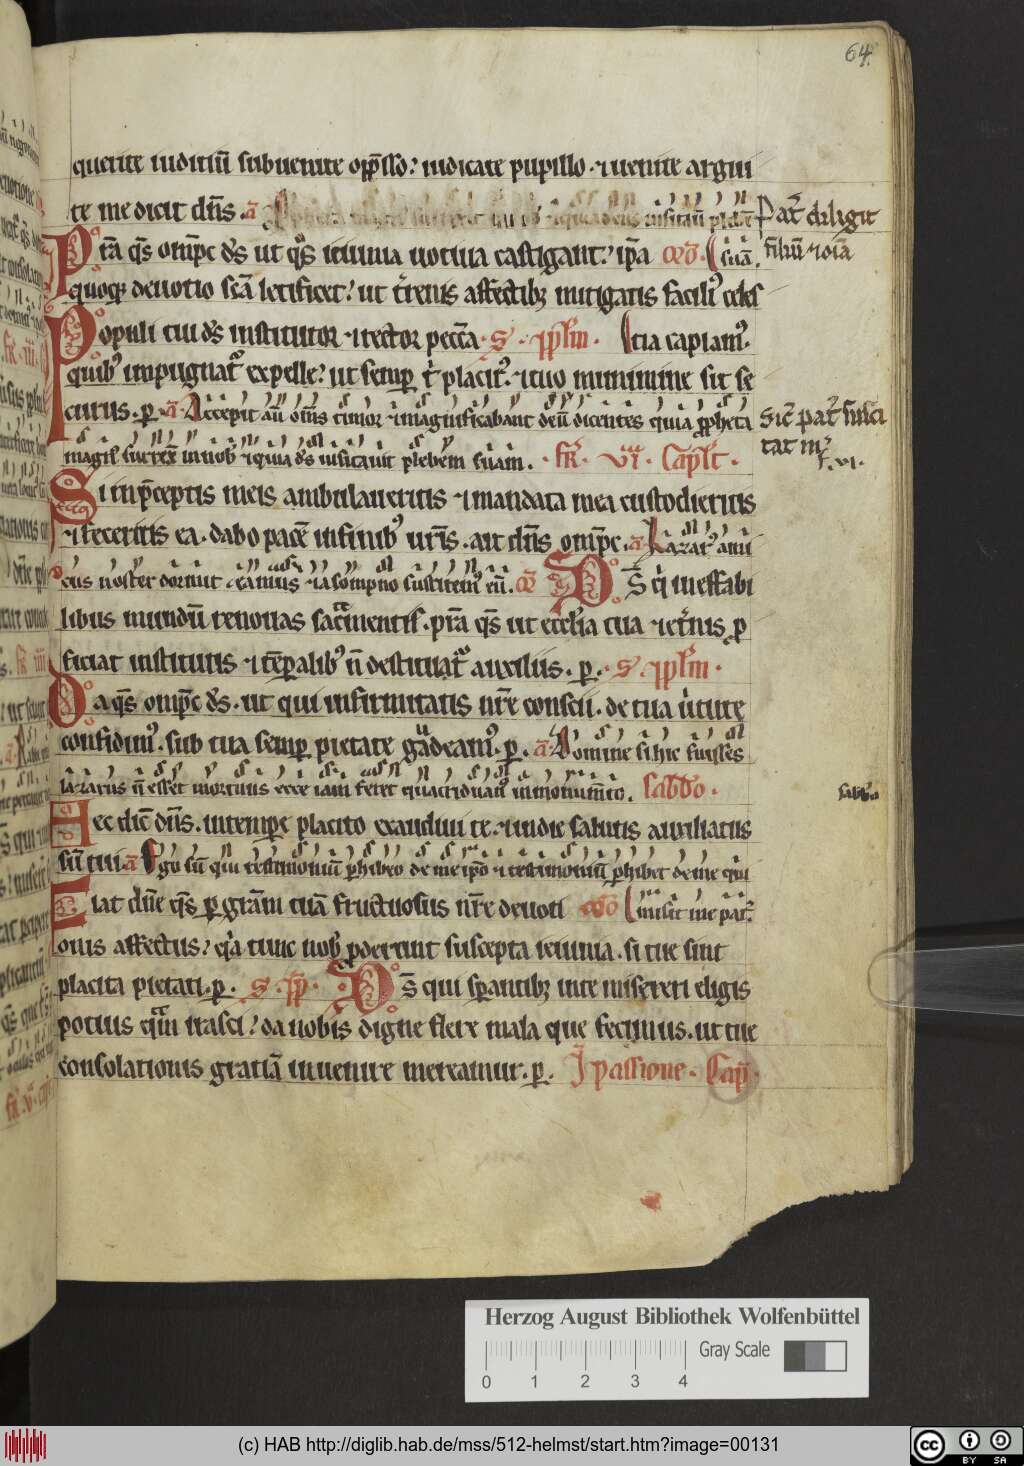 64.
querite iuditiũ subuenite opp̄sso? iudicate pupillo ⁊ uenite argui
te me dicit dñs. a᷈ uisitauit plebē
Pat᷑ diligit
P rā q̄s omp̄c d̄s ut q̊s ieiunia uotiua castigant? ip̄a
suā.
filiū ⁊ oīa
quoq; deuotio sc̄a letificet? ut t᷑renis affectib; mitigatis facili᷒ celes
Populi tui d̄s institutor ⁊ rector pecc̄a. S. pp̄l'm. tia capiam᷒.
quib᷒ impugnat᷑ expelle? ut semp̱ t' placit᷒. ⁊ tuo munimine sit se
curus. p̱. a᷈ Accepit aū om̄s timor ⁊ magnificabant deū dicentes quia p̱pheta
Sic̄ pat᷑ susci
magn᷒ surrex̄ in nob̄ ⁊ quia d̄s uisitauit plebem suam. fr̄. vi. Capl't.
tat m᷑
f. vi.
Si in p̄ceptis meis ambulaueritis ⁊ mandata mea custodieritis
⁊ feceritis ea. dabo pacē in finib᷒ ur̄is. ait dn̄s omp̄c. a᷈ Lazar᷒ ami
cus noster dormit eamus ⁊ a sompno suscitem᷒ eū. D S̄ q' ineffabi
libus mundū renouas sac̄mentis. prā q̄s ut eccl'ia tua ⁊ et᷑nis p̱
ficiat institutis ⁊ tēp̱alib᷒ n̄ destituat᷑ auxiliis. p̱. S. pp̄l'm.
Da q̄s omp̄c d̄s. ut qui infirmitatis nr̄e conscii. de tua u'tute
confidim᷒. sub tua semp̱ pietate gaudeam᷒. p̱. a᷈ Domine si hic fuisses
lazarus n̄ esset mortuus ecce iam fetet quatriduan᷒ in monum̄to. Sabbo.
sabbo
Hec dic̄ dn̄s. in temp̱e placito exaudiui te. ⁊ in die salutis auxiliatus
sū tui. a᷈ Ego sū qui testimoniū p̱hibeo de me ip̄o ⁊ testimoniū p̱hibet de me qui
Fiat dn̄e q̄s p̱ grām tuā fructuosus nr̄e deuoti misit me pat᷑.
onis affectus? q'a tunc nob̄ p̱derunt suscepta ieiunia. si tue sint
placita pietati. p̱. S. pp̄. D S̄ qui sp̱antib; in te misereri eligis
potius quam irasci? da nobis digne flere mala que fecimus. ut tue
consolationis gratiā inuenire mereamur. p̱. I passione. Cap̄.
Herzog August Bibliothek Wolfenbüttel
Gray Scale
0 1 2 3 4
(c) HAB http://diglib.hab.de/mss/512-helmst/start.htm?image=00131
cc BY SA